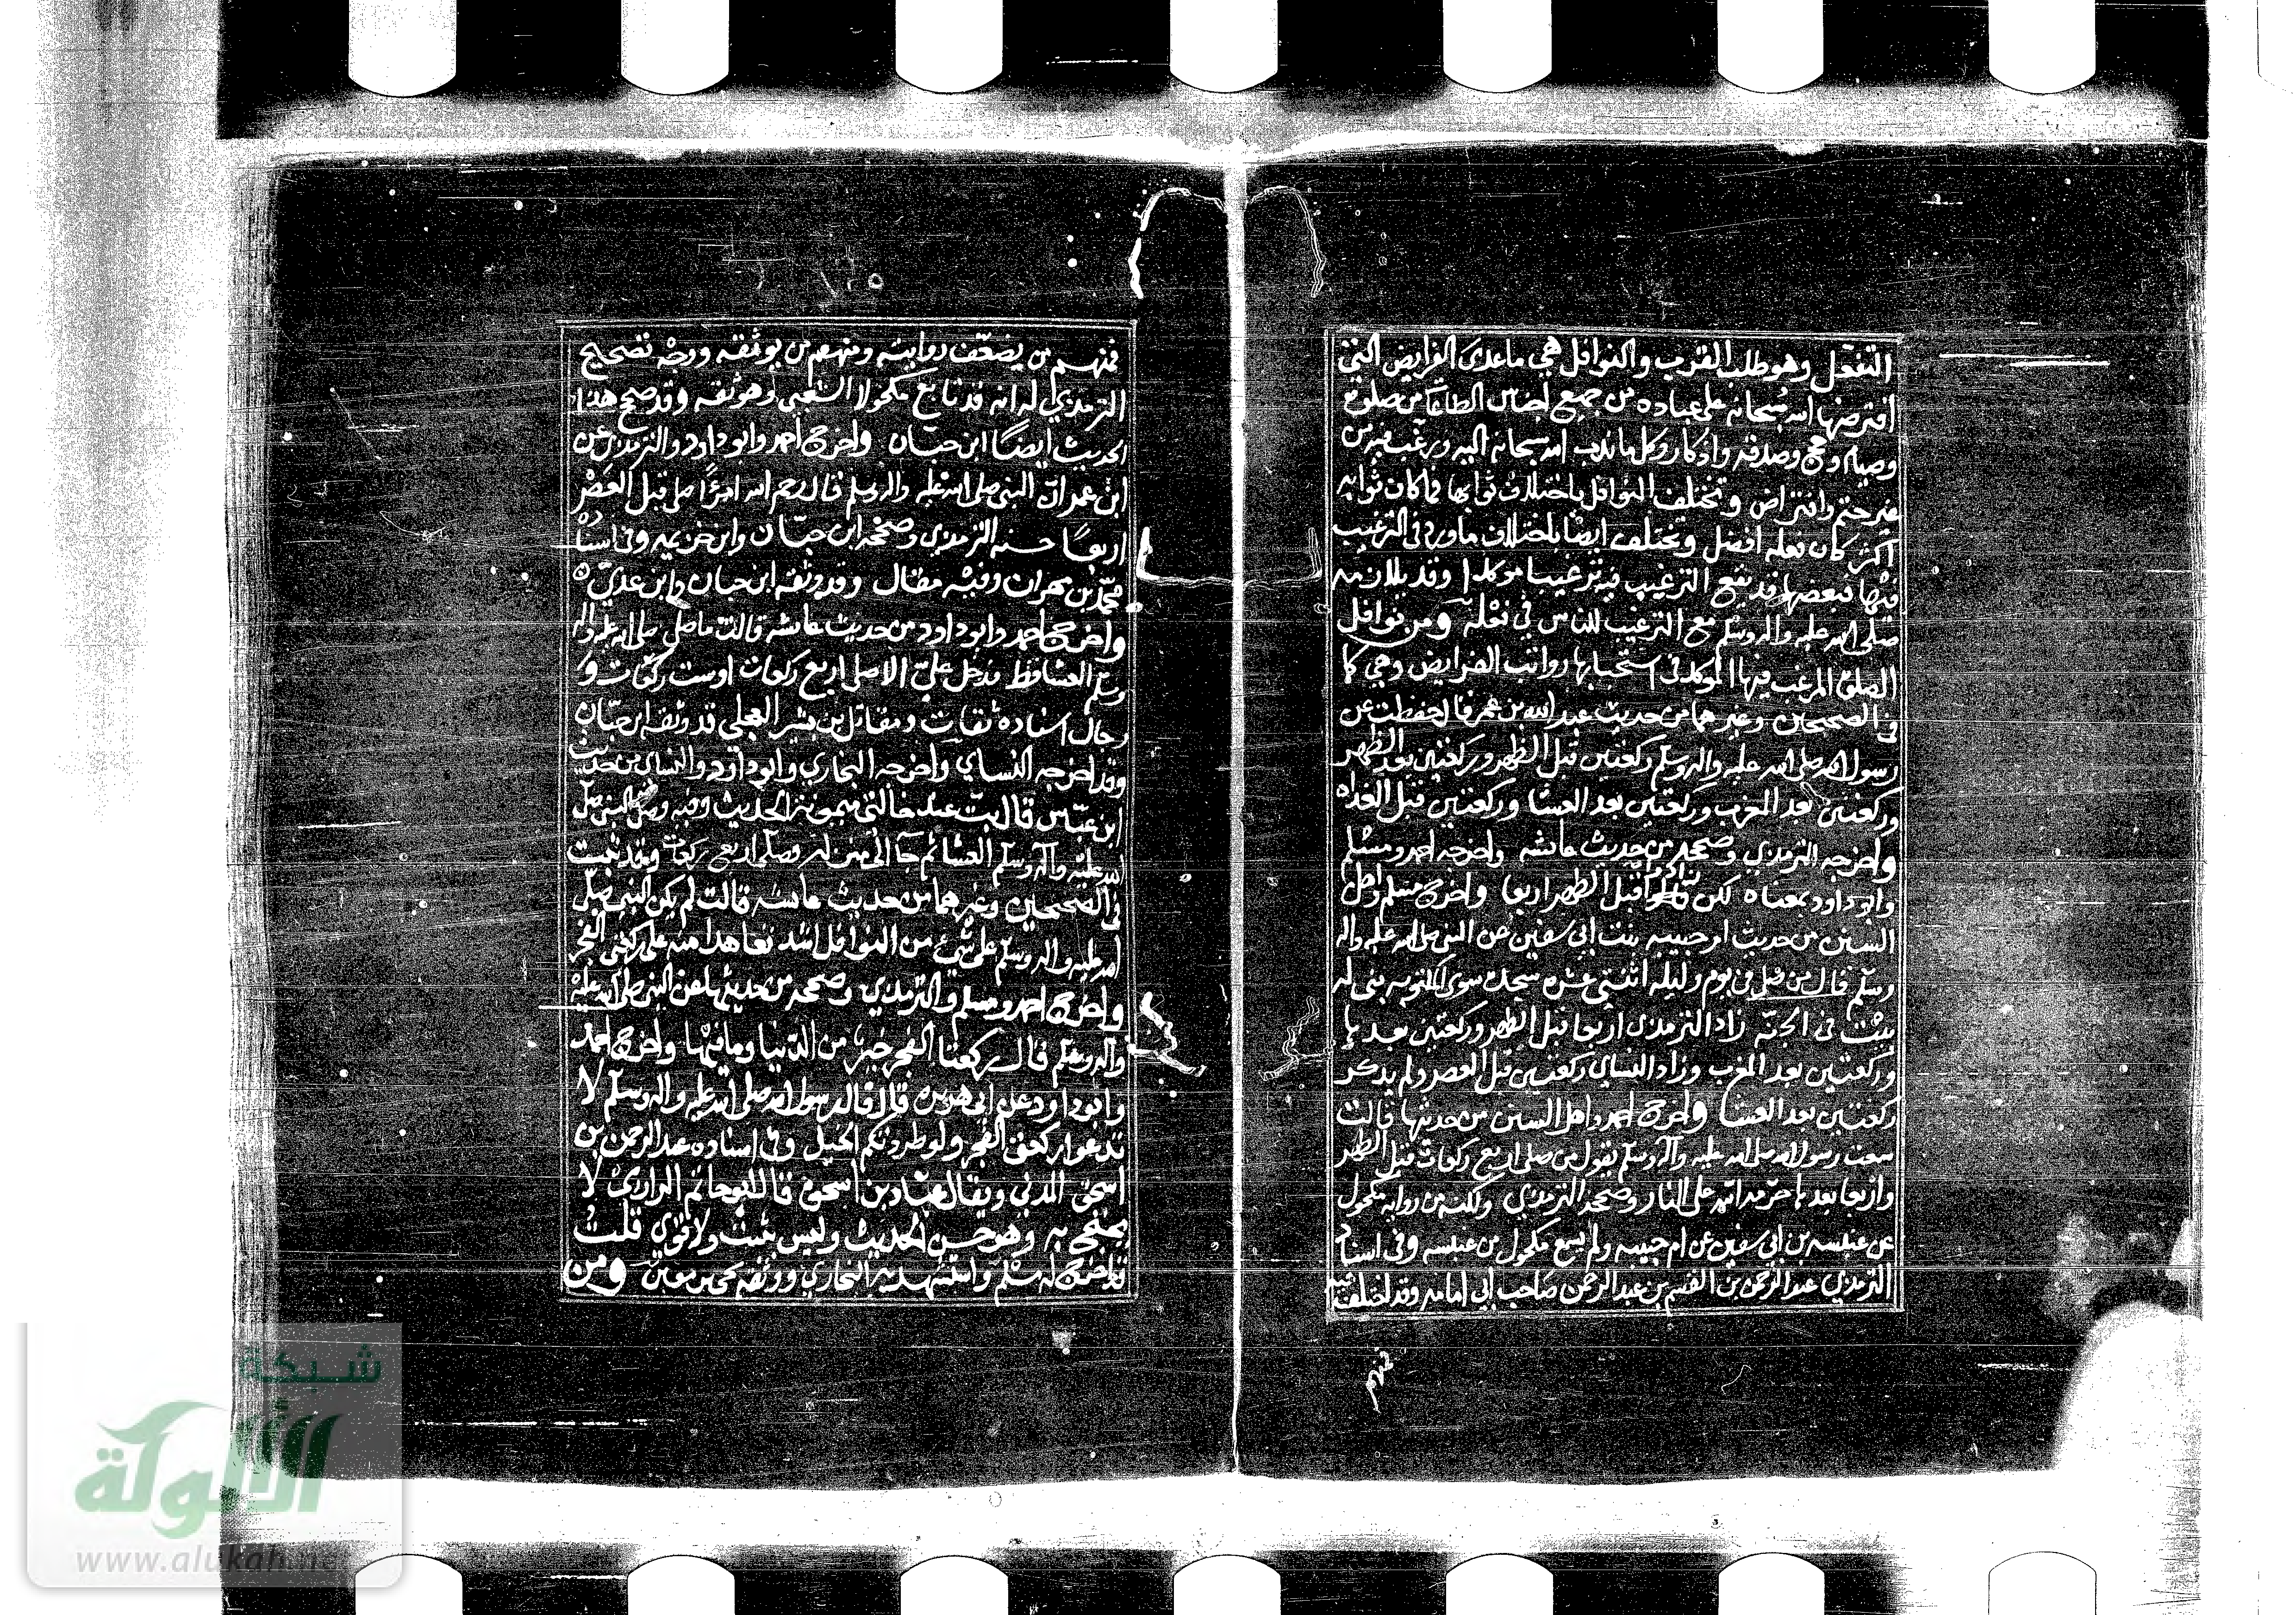 التفعل وهو طلب القرب والنوافل هي ما عدى الفرايض التي
افترضها الله سبحانه على عباده من جميع اجناس الطاعات من صلوة
وصيام وحج وصدقه واذكار وكل ما ندب الله سبحانه اليه ورغب فيه من
غير حتم وافتراض وتختلف النوافل باختلاف ثوابها فما كان ثوابه
اكثر كان فعله افضل وتختلف ايضًا باختلاف ما ورد في الترغيب
فيها فبعضها قد يقع الترغيب فيه ترغيبا موكدا وقد يلازمه
صلى الله عليه واله وسلم مع الترغيب للناس في فعله ومن نوافل
الصلوة المرغب فيها الموكد في استحبابها رواتب الفرايض وهي كما
في الصحيحين وغيرهما من حديث عبد الله بن عمر قال حفظت عن
رسول الله صلى الله عليه واله وسلم ركعتين قبل الظهر وركعتين بعد الظهر
وركعتين بعد المغرب وركعتين بعد العشا وركعتين قبل الغداه
واخرجه الترمذي وصححه من حديث عائشه واخرجه احمد ومسلم
وابو داود بمعناه لكن زادوا قبل الظهر اربعا واخرج مسلم واهل
السنن من حديث ام حبيبه بنت ابي سفين عن النبي صلى الله عليه واله
وسلم قال من صلى في يوم وليله اثنتي عشره سجده سوى المكتوبه بنى له
بيت في الجنه زاد الترمذي اربعا قبل الظهر وركعتين بعدها
وركعتين بعد المغرب وزاد النساي ركعتين قبل العصر ولم يذكر
ركعتين بعد العشا واخرج احمد واهل السنن من حديثها قالت
سمعت رسول الله صلى الله عليه واله وسلم يقول من صلى اربع ركعات قبل الظهر
واربعا بعدها حرمه الله على النار وصححه الترمذي ولكنه من روايه مكحول
عن عنبسه بن ابي سفين عن ام حبيبه ولم يسمع مكحول من عنبسه وفي اسناد
الترمذي عبد الرحمن بن القسم بن عبد الرحمن صاحب ابي امامه وقد اختلف فيه
فمنهم
فمنهم من يضعف روايته ومنهم من يوثقه ووجه تصحيح
الترمذي له انه قد تابع مكحولا الشعبي وهو ثقه وقد صحح هذا
الحديث ايضًا ابن حبان واخرج احمد وابو داود والترمذي عن
ابن عمر ان النبي صلى الله عليه واله وسلم قال رحم الله امرًا صلى قبل العصر
اربعًا حسنه الترمذي وصححه ابن حبان وابن خزيمه وفي اسناده
محمد بن مهران وفيه مقال وقد وثقه ابن حبان وابن عدي
واخرج احمد وابو داود من حديث عائشه قالت ما صلى صلى الله عليه واله
وسلم العشا قط فدخل علي الا صلى اربع ركعات او ست ركعات و
رجال اسناده ثقات ومقاتل بن بشير العجلي قد وثقه ابن حبان
وقد اخرجه النساي واخرجه البخاري وابو داود والنساي من حديث
ابن عباس قال بت عند خالتي ميمونه الحديث وفيه وصلى النبي صلى
الله عليه واله وسلم العشا ثم جا الى منزله وصلى اربع ركعات وقد ثبت
في الصحيحين وغيرهما من حديث عائشه قالت لم يكن النبي صلى
الله عليه واله وسلم على شيء من النوافل اشد تعاهدا منه على ركعتي الفجر
واخرج احمد ومسلم والترمذي وصححه من حديثها عن النبي صلى الله عليه
واله وسلم قال ركعتا الفجر خير من الدنيا وما فيها واخرج احمد
وابو داود عن ابي هريره قال قال رسول الله صلى الله عليه واله وسلم لا
تدعوا ركعتي الفجر ولو طردتكم الخيل وفي اسناده عبد الرحمن بن
اسحق المدني ويقال عباد بن اسحق قال ابو حاتم الرازي لا
يحتج به وهو حسن الحديث وليس بثبت ولا قوي قلت
قد اخرج له مسلم واستشهد به البخاري ووثقه يحيى بن معين ومن
شبكة
الألوكة
www.alukah.net